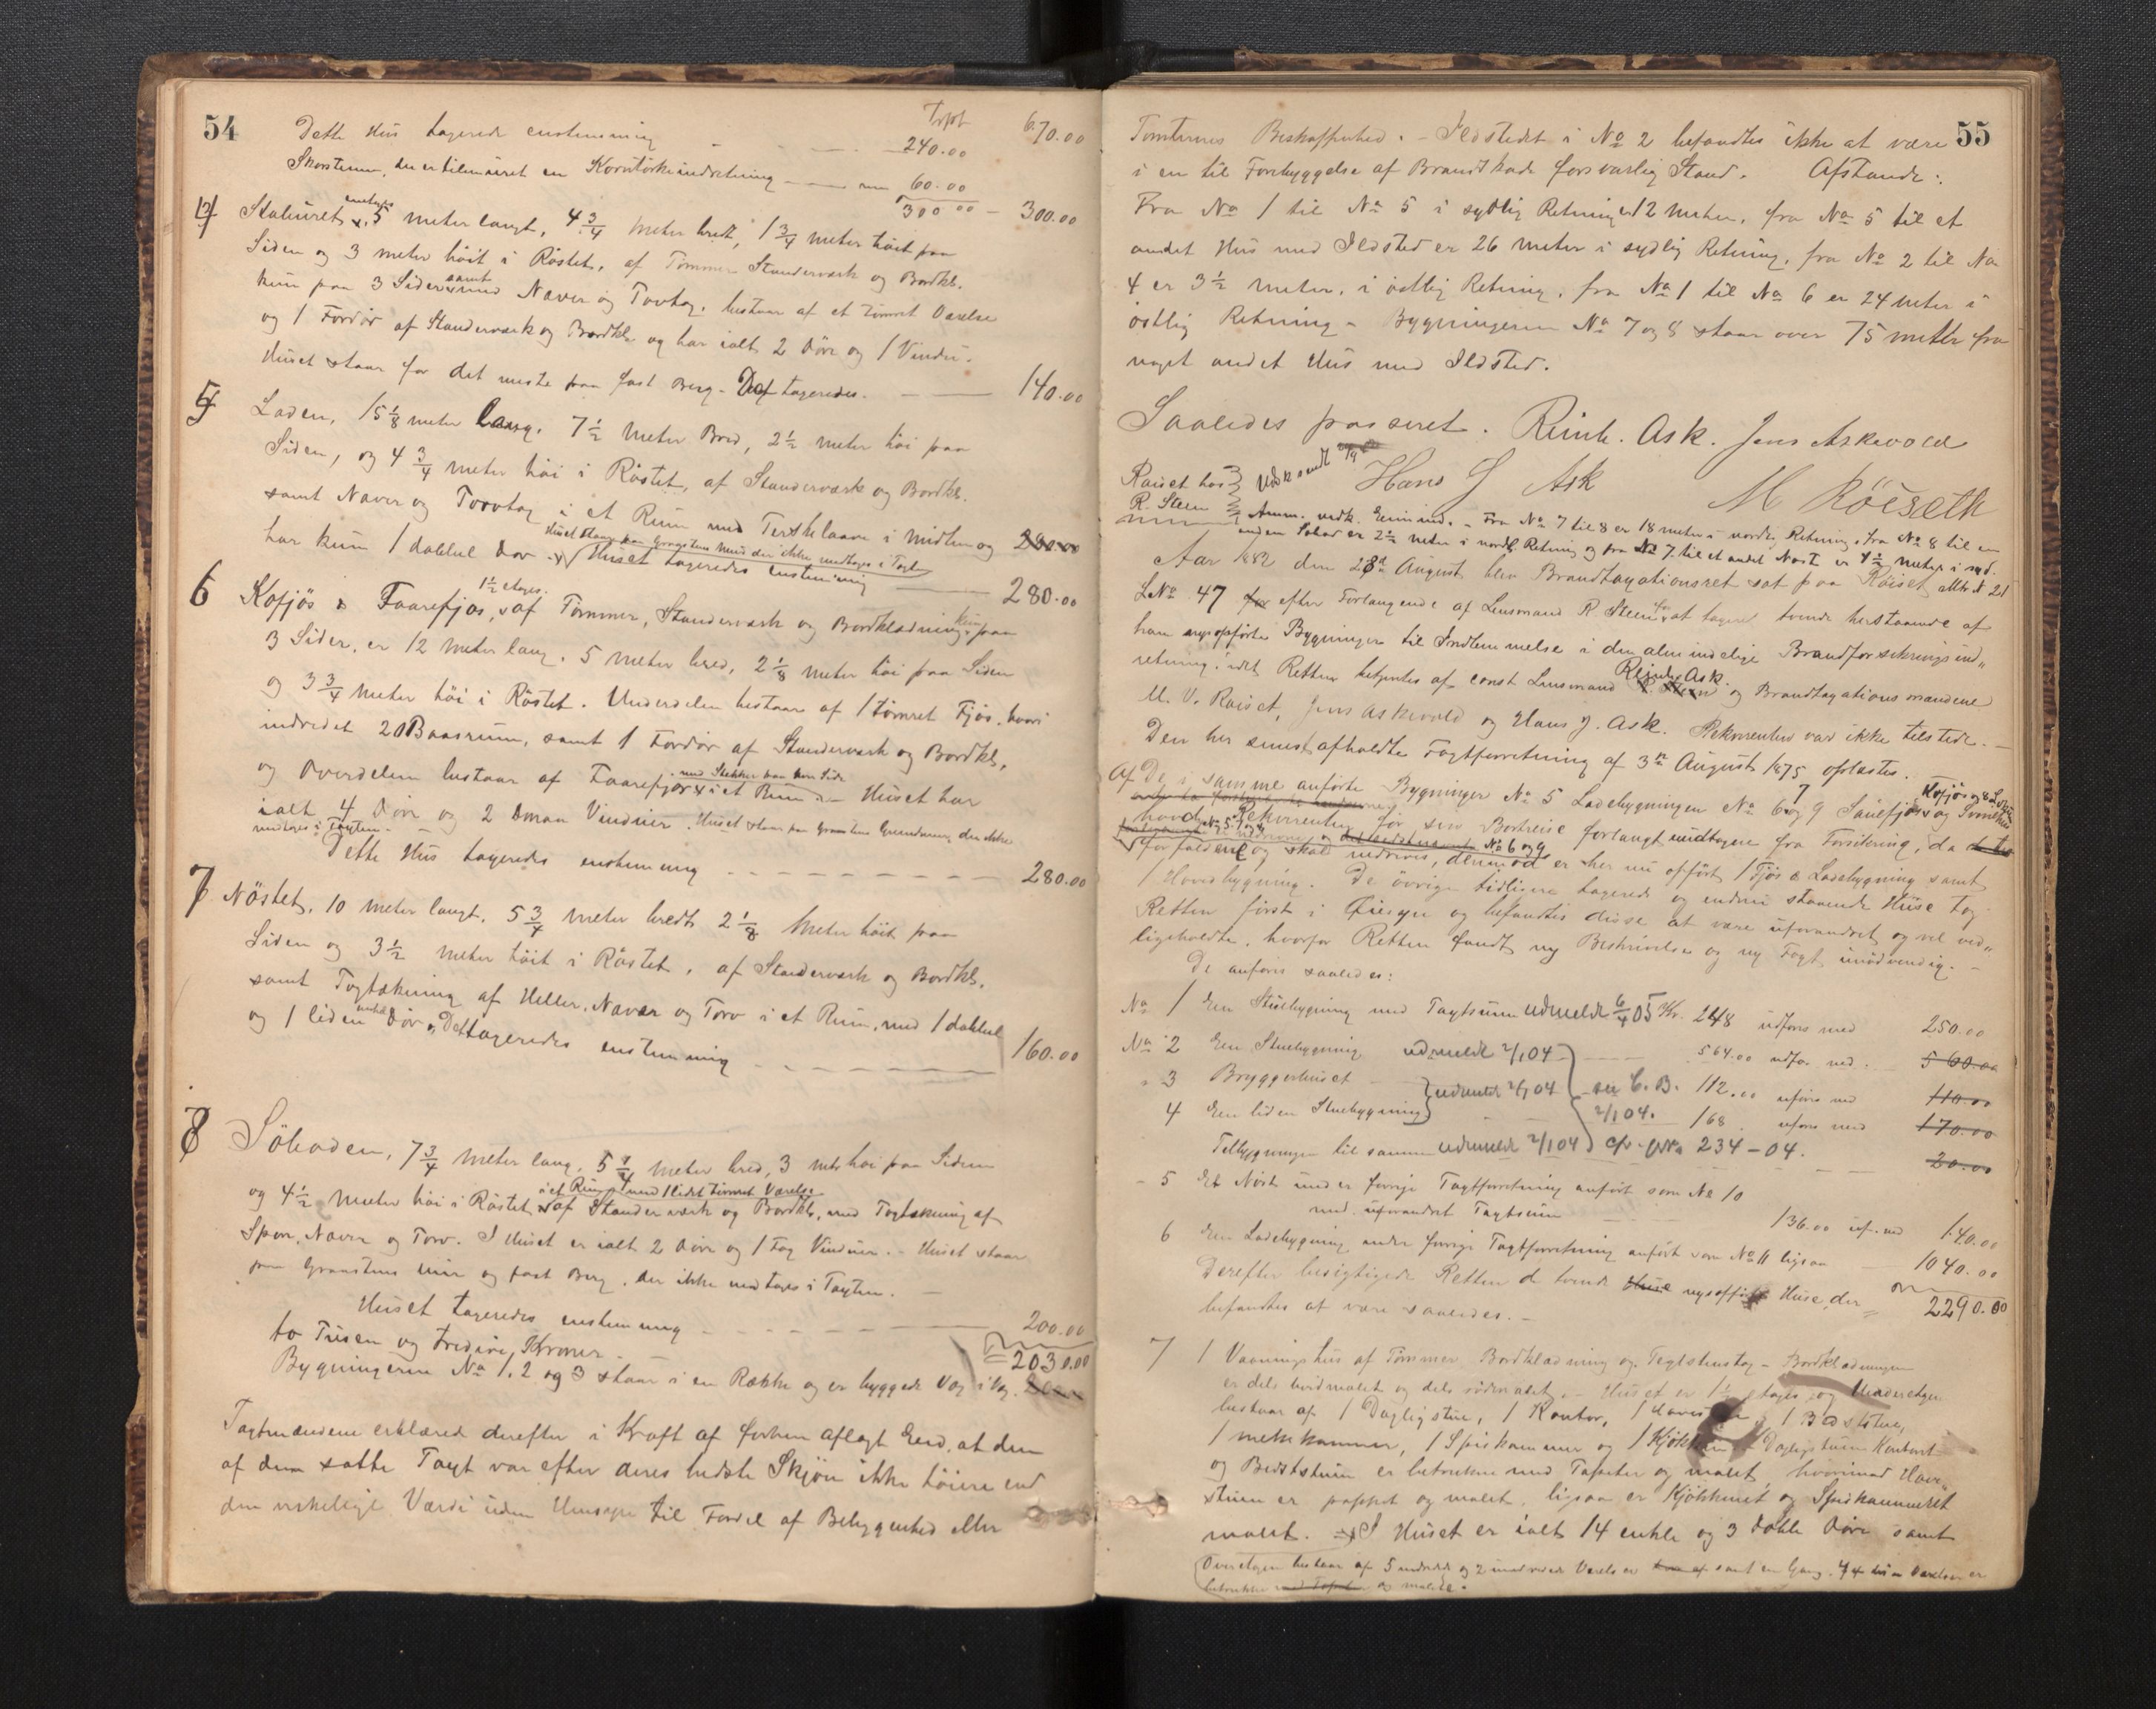 54
Trpt 670.00
Dette Hus taxeredes enstemmig — — 240.00
Skorstenen, der er tilmuret en Korntörkeindretning — 60.00
300.00 — 300.00
4 Stabüret, 1 etages, 5 meter langt, 4 3/4 meter bredt, 1 3/4 meter höit paa
Siden og 3 meter höit i Röstet, af Tømmer Standerværk og Bordkl.
kun paa 3 Sider samt med Næver og Torvtag, bestaar af et tömret Værelse
og 1 Fordör af Standerværk og Bordkl. og har ialt 2 Döre og 1 Vindu.
Huset staar for det meste paa fast Berg. Det taxeredes. — — 140.00
5 Laden, 15 1/8 meter lang, 7 1/2 meter bred, 2 1/2 meter höi paa
Siden, og 4 3/4 meter höi i Röstet, af Standerværk og Bordkl.
samt Næver og Torvtag i et Rum med Terskelaave i midten og 280.00
har kun 1 dobbel Dör. Huset staar paa Graastens Muur der ikke medtages i Taxt
Huset taxeredes enstemmig — 280.00
6 Kofjös & Faarefjos, 1 1/2 etages, af Tömmer, Standerværk og Bordklædning kun paa
3 Sider, er 12 meter lang, 5 meter bred, 2 1/8 meter höi paa Siden
og 3 3/4 meter höi i Röstet. Underdelen bestaar af 1 tömret Fjös, hvori
indredet 20 Baasrum, samt 1 Fordör af Standerværk og Bordkl,
og Overdelen bestaar af Faarefjos i et Rum med Stekker paa hver Side — Huset har
ialt 4 Döre og 2 smaa Vinduer. Huset staar paa Graastens Grundmur, der ikke
medtages i Taxten.
Dette Hus taxeredes enstemmig — — — — 280.00
7 Nöstet, 10 meter langt, 5 3/4 meter bredt, 2 1/8 meter höit paa
Siden og 3 1/2 meter höit i Röstet, af Standerværk og Bordkl.
samt Tagtækning af Heller, Næver og Torv i et Rum, med 1 dobbel
og 1 liden enkel Dör. Det taxeredes enstemmig — — — 160.00
8 Söboden, 7 3/4 meter lang, 5 1/4 meter bred, 3 metr höi paa Siden
og 4 1/2 meter höi i Röstet, i et Rum med 1 lidet tömret Værelse
af Standerværk og Bordkl, med Tagtækning af
Spon, Næver og Torv. I Huset er ialt 2 Döre og 1 Fag Vinduer. — Huset staar
paa Graastens Mur og fast Berg, der ikke medtages i Taxten. —
Huset taxeredes enstemmig — — — — 200.00
= 2030.00
to Tusen og tredive Kroner —
Bygningerne No 1, 2 og 3 staar i en Række og er byggede Væg i Væg.
Taxtmændene erklærede derefter i Kraft af forhen aflagt Eed, at den
af dem satte Taxt var efter deres bedste Skjön ikke höiere end
den virkelige Værdi uden Hensyn til Fordel af Beliggenhed eller
55
Tomternes Beskaffenhed. — Ildstedet i No 2 befandtes ikke at være
i en til Forebyggelse af Brandskade forsvarlig Stand. Afstande:
Fra No 1 til No 5 i sydlig Retning 12 meter, fra No 5 til et
andet Hus med Ildsted er 26 meter i sydlig Retning, fra No 2 til No
4 er 3 1/2 meter, i östlig Retning, fra No 1 til No 6 er 24 meter i
östlig Retning — Bygningerne No 7 og 8 staar over 75 meter fra
noget andet Hus med Ildsted.
Saaledes passeret. Reinh. Ask. Jens Askevold
Hans J Ask M Röisæth
Raiset hos R. Steen Udsk sendt
Anm. vedk. — Fra No 7 til 8 er 18 meter i nordlig Retning, fra No 8 til en
anden Söbod er 2 1/2 meter i nordl. Retning og fra No 7 til et andet Nöst er 4 1/2 meter i syd.
Aar 1882 den 28de August blev Brandtaxationsret sat paa Röiset Mtr N 21
LNo 47 for efter Forlangende af Lensmand R Steen for at taxere tvende herstaaende af
ham nyopförte Bygninger til Indlemmelse i den almindelige Brandforsikringsind„
retning, idet Retten betjentes af const Lensmand Reinh. Ask og Brandtaxationsmændene
M. V. Raiset, Jens Askevold og Hans J. Ask. Rekvirenten var ikke tilstede. —
Den her senest afholdte Taxtforretning af 3de August 1875 oplæstes.
Af De i samme anförte Bygninger No 5 Ladebygningen No 6, 7 og 9 Sauefjös, Kofjös og
havde Rekvirenten för sin Bortreise forlangt undtagne fra Forsikring, da
No 5, 7 og No 6 og 9
forfaldene og skal nedrives, derimod er her nu opfört 1 Fjös & Ladebygning samt
1 Hovedbygning. De övrige tidligere taxerede og endnu staaende Huse tog
Retten först i Öiesyn og befandtes disse at være uforandret og vel ved„
ligeholdte, hvorfor Retten fandt ny Beskrivelse og ny Taxt unödvendig. —
De anföres saaledes:
No 1 Een Stuebygning med Taxtsum udmeldt 6/4 05 Kr. 248 udföres med 250.00
No 2 Een Stuebygning udmeldt 2/1 04 — 564.00 udför. med 560.00
" 3 Bryggerhuset — udmeldt 2/1 04 see C. B. 112.00 uföres med 110.00
4 Een liden Stuebygning — 2/1 04. 168 uföres med 170.00
Tilbygningen til samme udmeldt 2/1 04 cfr. JNo 234 — 04. — — 20.00
" 5 Et Nöst under forrige Taxtforretning anfört som No 10
med uforandret Taxtsum — 136.00 uf. med 140.00
6 Een Ladebygning under forrige Taxtforretning anfört som No 11 ligesaa — 1040.00
Derefter besigtigede Retten de tvende Huse nyopförte Huse, der = 2290.00
befandtes at være saaledes. —
7 1 Vaaningshus af Tömmer, Bordklædning og Teglstenstag — Bordklædningen
er dels hvidmalet og dels rödmalet. — Huset er 1 1/2 etages, og Underetagen
bestaar af 1 Dagligstue, 1 Kontor, 1 1 Bedststue,
1 melkekammer, 1 Spiskammer og 1 Kjökken — Dagligstuen Kontoret
og Bedststuen er betrukne med Tapeter og malet, hvorimod
stuen er pappet og malet, ligesaa er Kjökkenet og Spiskammeret
malet. — I Huset er ialt 14 enkle og 3 doble Döre samt
Overetagen bestaar af 5 indredede og 2 uindredede Værelser samt en Gang. Værelser er
betrukne med Tapeter og malede.